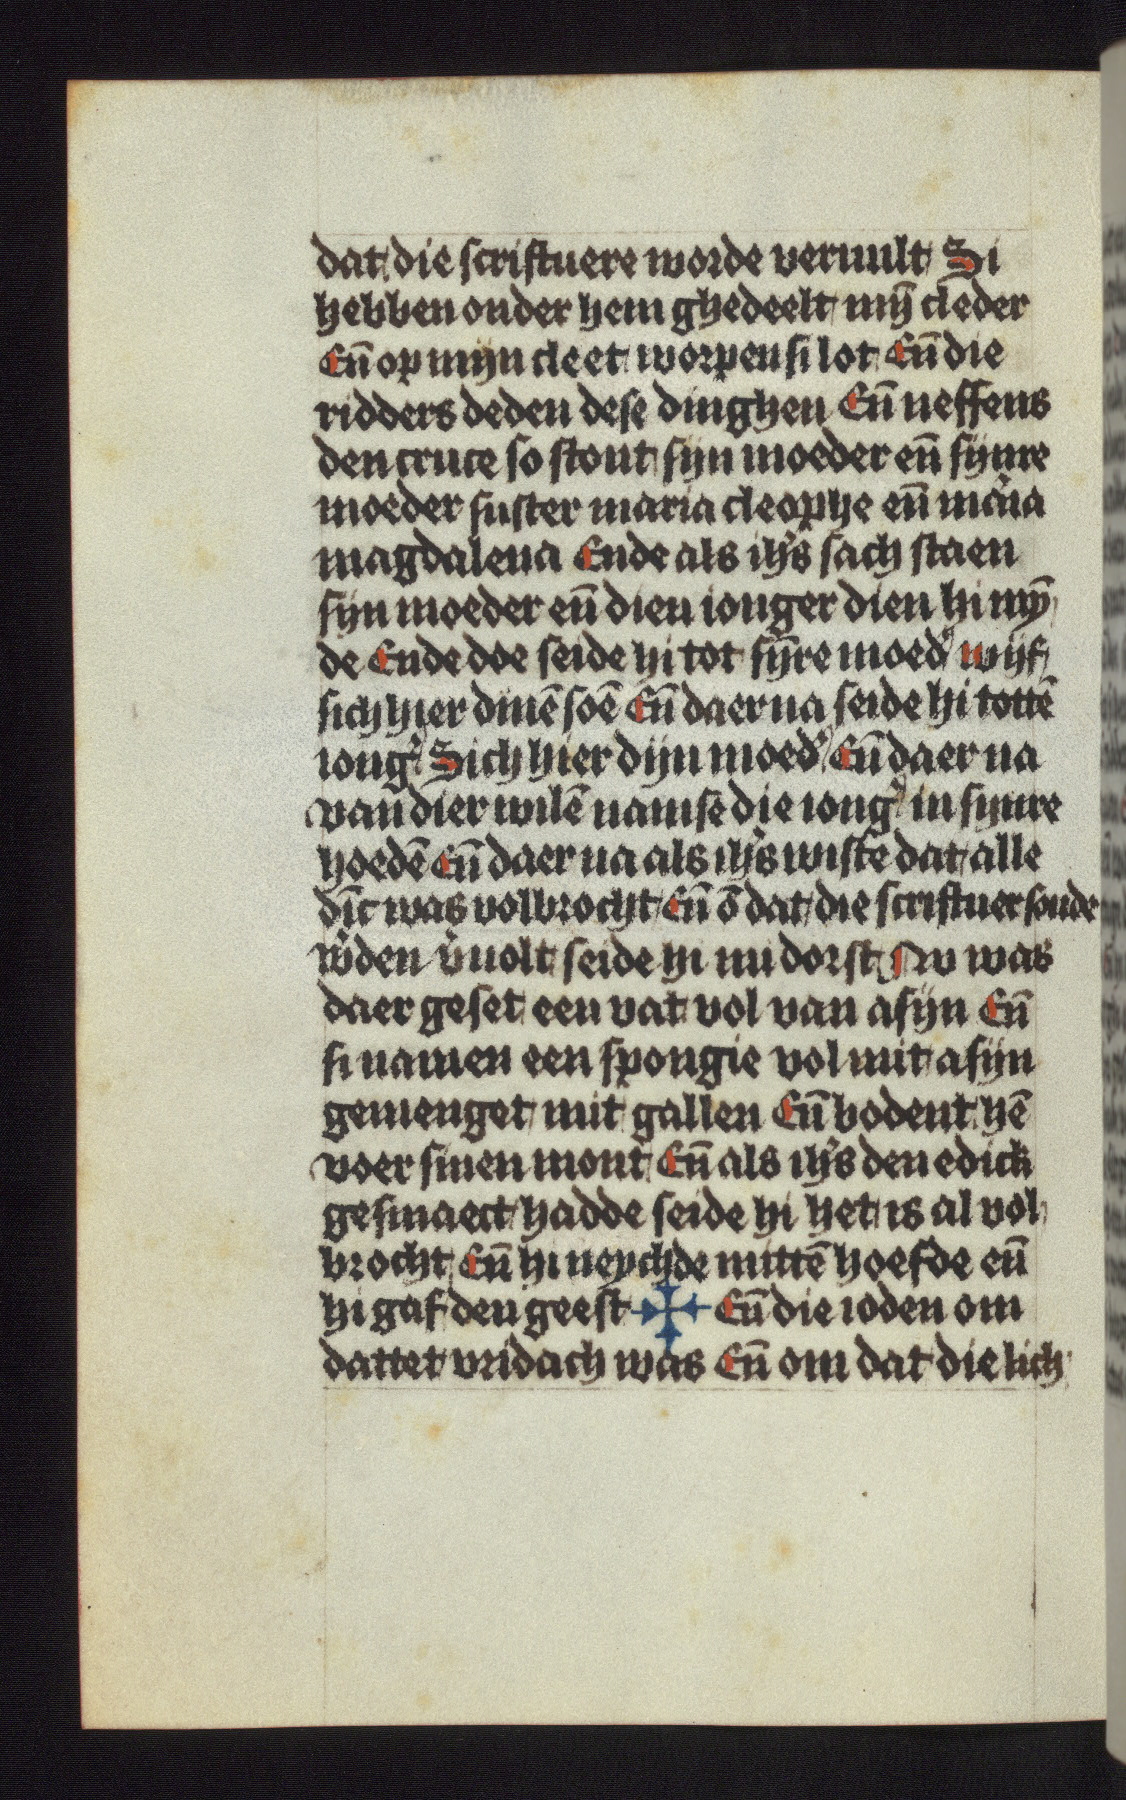 dat die scriftuere worde veruult Si
hebben onder hem ghedeelt mȳ cleder
Eñ op mijn cleet worpen si lot Eñ die
ridders deden dese dinghen Eñ neffens
den cruce so stont sijn moeder eñ sijnre
moeder suster maria cleophe eñ maͥia
magdalena Ende als ihs sach staen
sijn moeder eñ dien ionger dien hi mȳ
de Ende doe seide hi tot sȳre moedʼ wijf
sich hier dinē soē Eñ daer na seide hi tottē
iongʼ Sich hier dijn moedʼ Eñ daer na
van dier wilē nam se die iongʼ in sijnre
hoedē Eñ daer na als ihs wiste dat alle
dīc was volbrocht Eñ ō dat die scriftuer soude
wʼden vʼuolt seide hi mi dorst Nv was
daer geset een vat vol van asijn Eñ
si namen een spongie vol mit asijn
gemenget mit gallen Eñ bodent hē
voer sinen mont Eñ als ihs den edick
gesmaect hadde seide hi het is al vol
brocht Eñ hi neychde mittē hoefde eñ
hi gaf den geest ✠ Eñ die ioden om
dattet vridach was Eñ om dat die lich